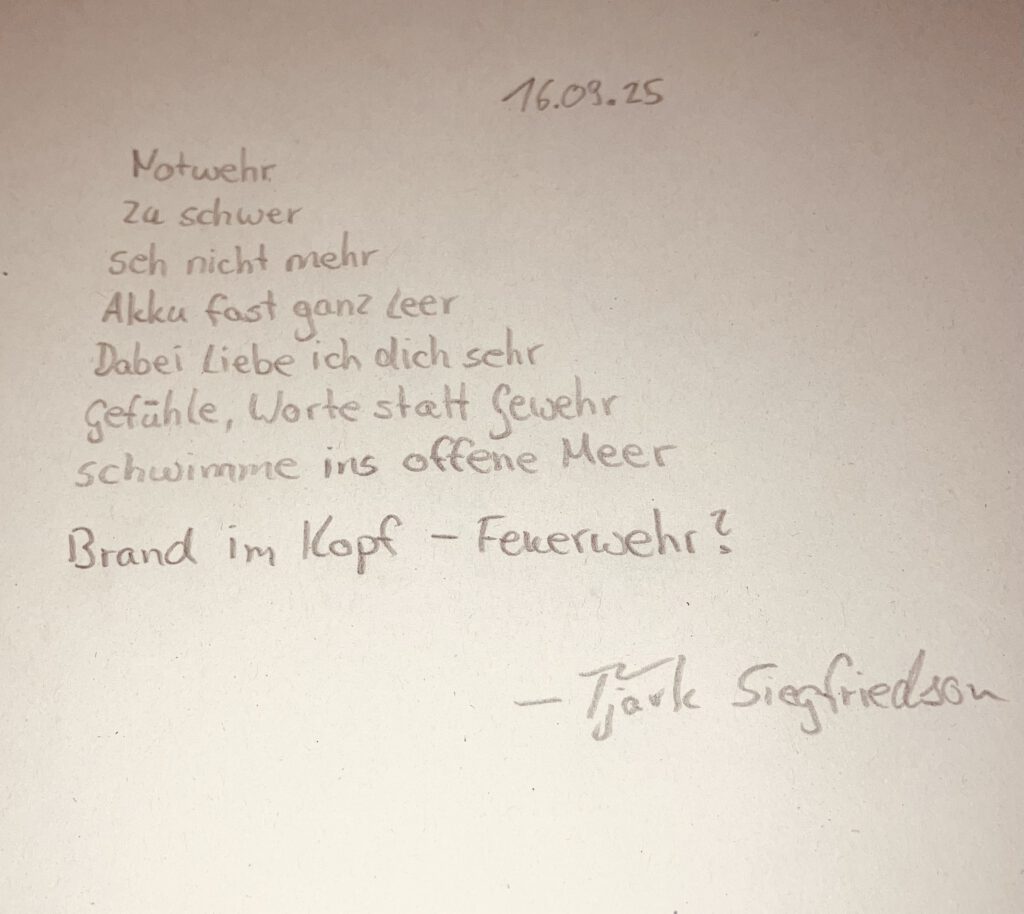 16.09.25
Notwehr
zu schwer
seh nicht mehr
Akku fast ganz leer
Dabei liebe ich dich sehr
Gefühle, Worte statt Gewehr
schwimme ins offene Meer
Brand im Kopf – Feuerwehr?
– Tjark Siegfriedson